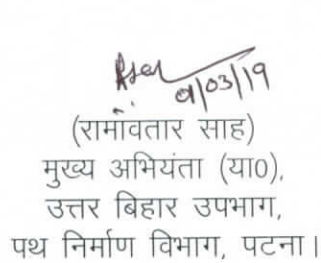 9/03/19
(रामावतार साह)
मुख्य अभियंता (या0),
उत्तर बिहार उपभाग,
पथ निर्माण विभाग, पटना।